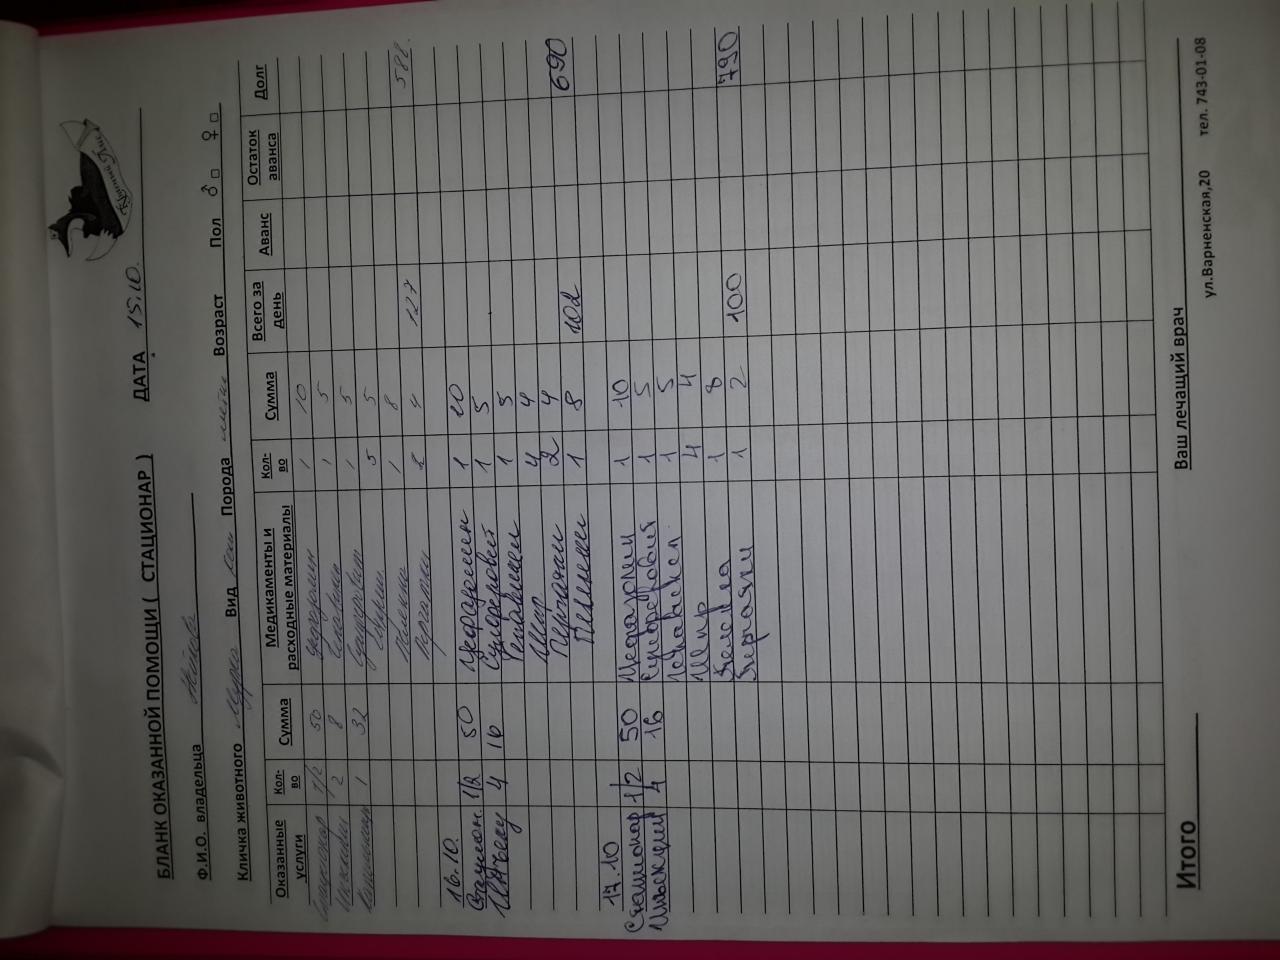 БЛАНК ОКАЗАННОЙ ПОМОЩИ ( СТАЦИОНАР ) ДАТА 15.10.
Ф.И.О. владельца
Кличка животного Мурка Вид Порода Возраст Пол ♂ □ ♀ □
Оказанные услуги Кол-во Сумма Медикаменты и расходные материалы Кол-во Сумма Всего за день Аванс Остаток аванса Долг
Стационар 1/2 50 1 10
2 8 1 5
1 32 1 5
5 5
Пеленки 1 8 588.
Перчатки 4 127
16.10.
Стацион. 1/2 50 Цефазолин 1 10
4 16 1 5
1 5
Шпр 4 4
Перчатки 2 4
Пеленки 1 8 102 690
17.10
Стационар 1/2 50 Цефазолин 1 10
Инъекции 4 16 1 5
1 5
Шпр 4 4
Пеленка 1 8
Перчатки 1 2 100 790
Итого Ваш лечащий врач
ул.Варненская,20 тел. 743-01-08